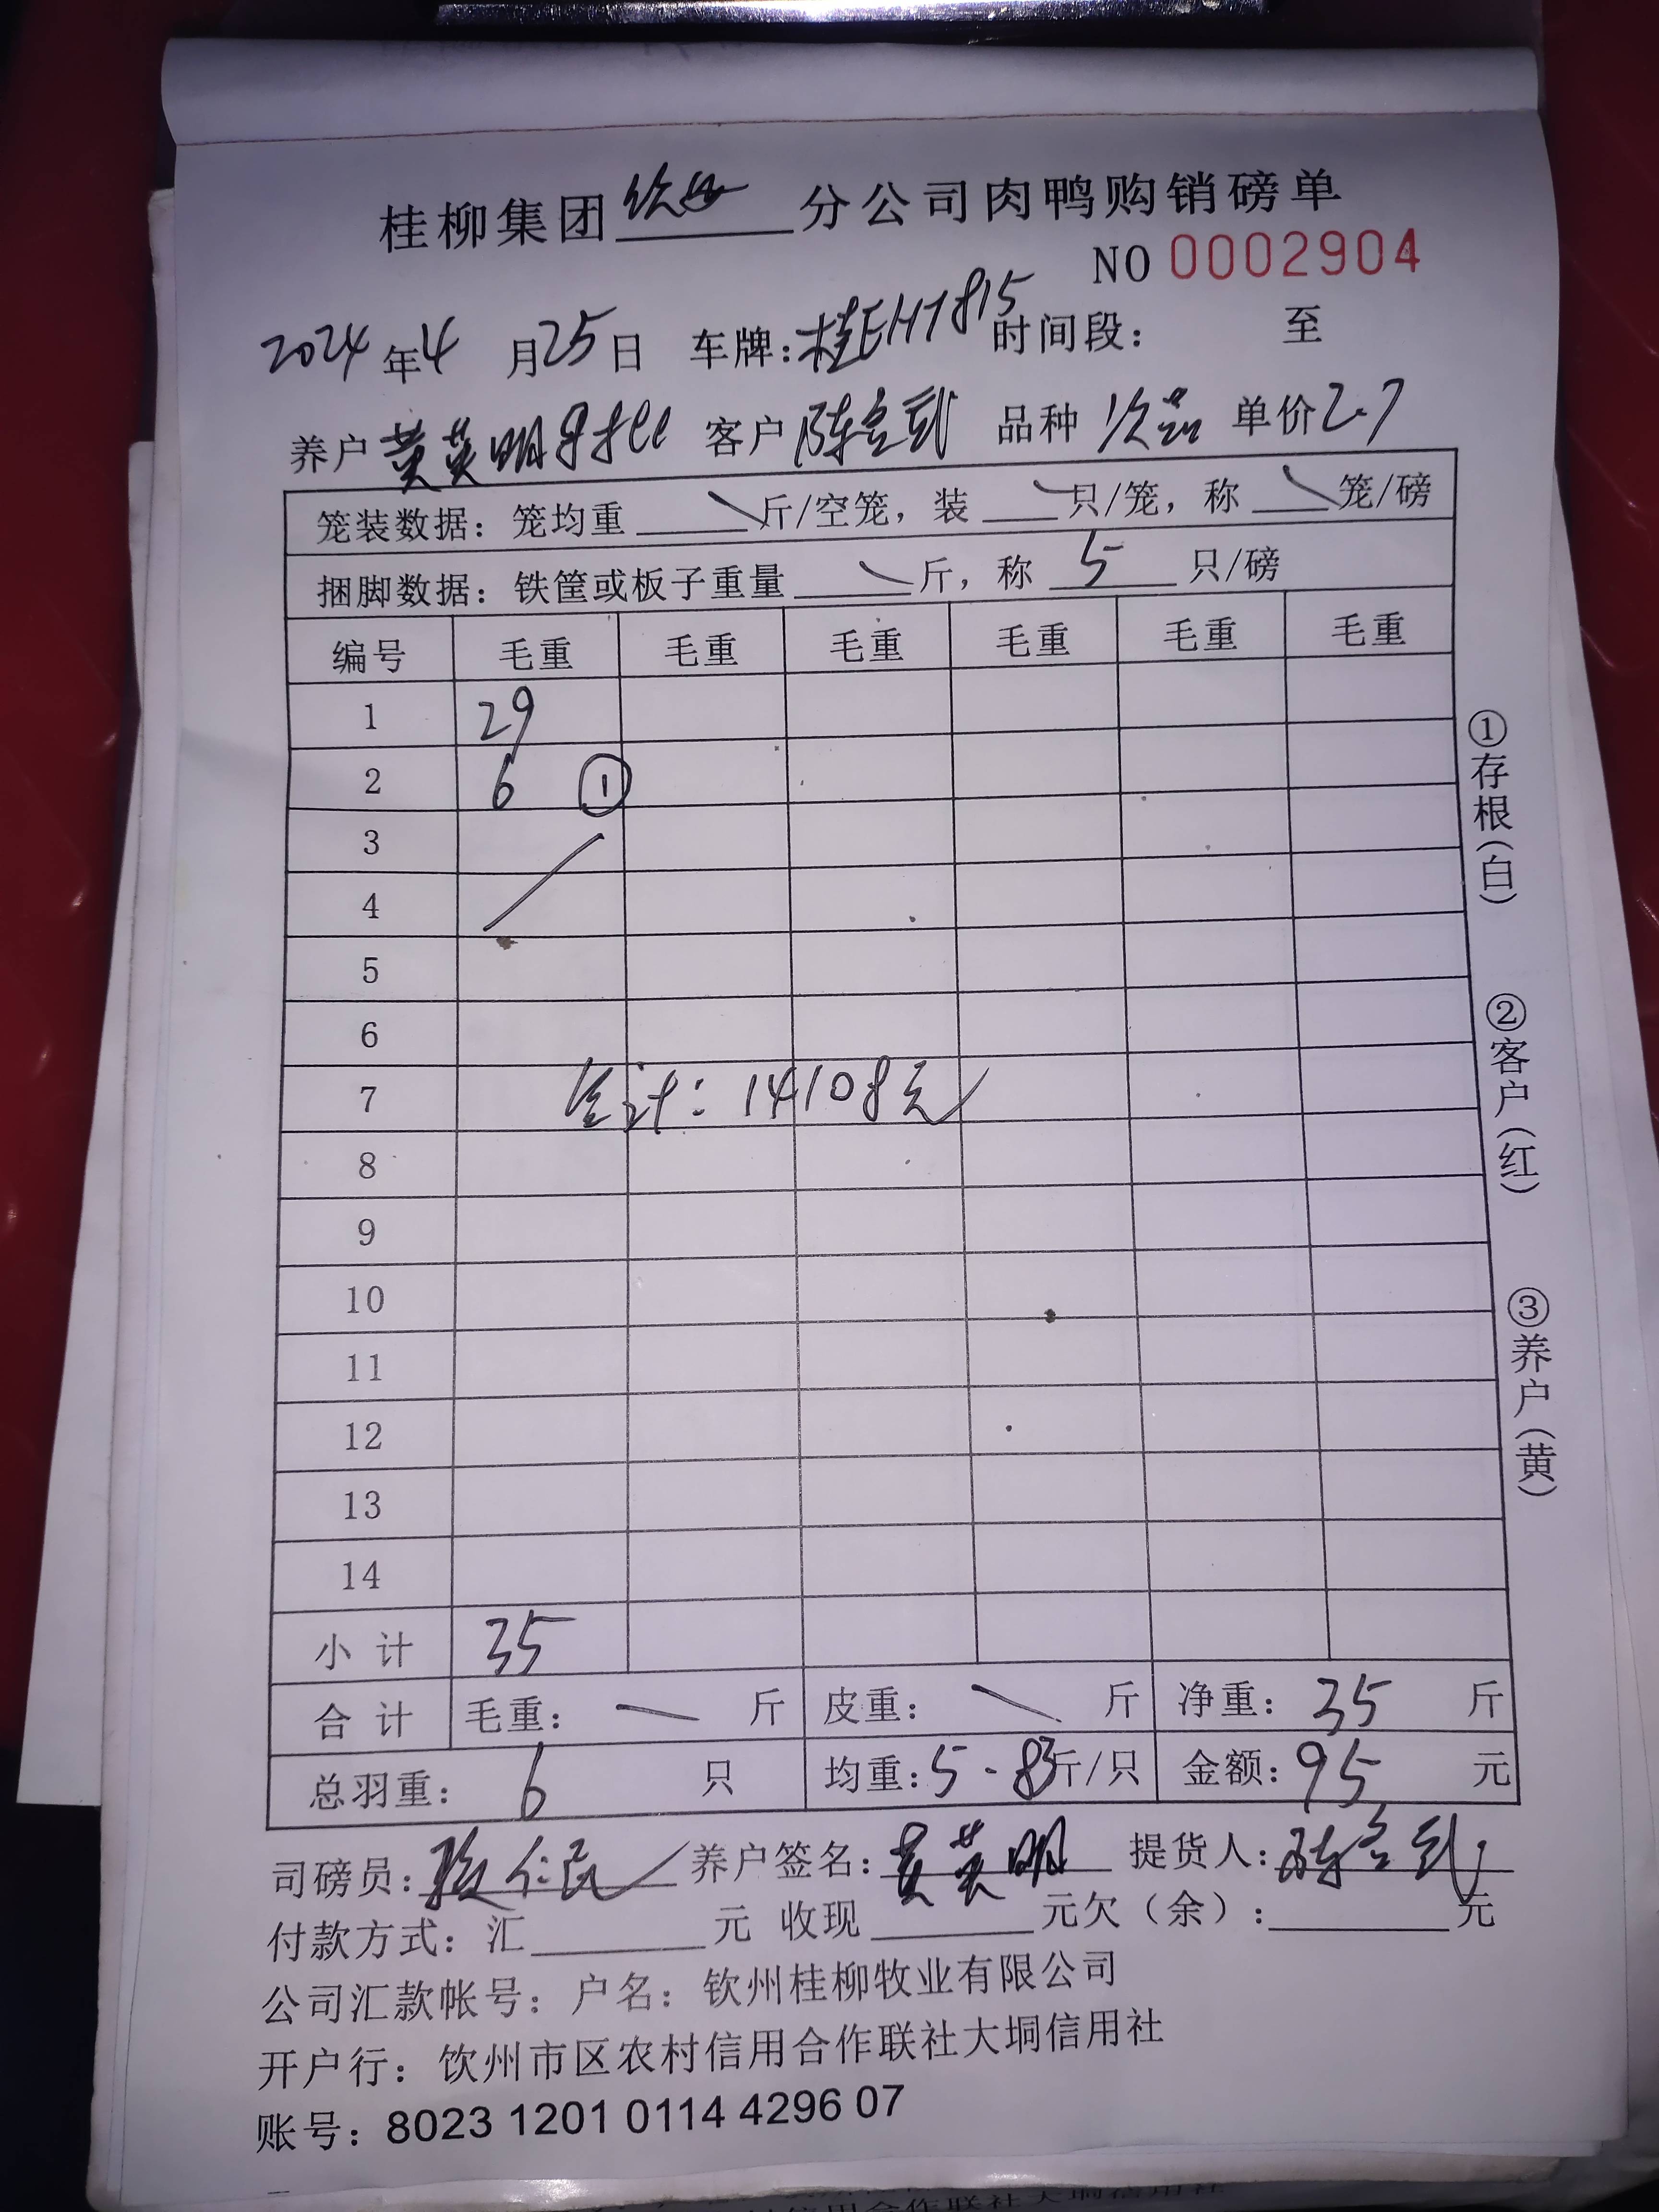 桂柳集团 钦州 分公司肉鸭购销磅单
NO 0002904
2024 年 4 月 25 日 车牌：桂EH7815 时间段： 至
养户 黄英明 客户 陈立武 品种 次品 单价 2.7
笼装数据：笼均重 斤/空笼，装 只/笼，称 笼/磅
捆脚数据：铁筐或板子重量 斤，称 5 只/磅
编号 毛重 毛重 毛重 毛重 毛重 毛重
1 29
2 6 ①
3
4
5
6
7 合计：14108元
8
9
10
11
12
13
14
小 计 35
合 计 毛重： 斤 皮重： 斤 净重：35 斤
总羽重：6 只 均重：5.83斤/只 金额：95 元
司磅员： 仁民 养户签名：黄英明 提货人：陈立武
付款方式：汇 元 收现 元欠（余）： 元
公司汇款帐号：户名：钦州桂柳牧业有限公司
开户行：钦州市区农村信用合作联社大垌信用社
账号：8023 1201 0114 4296 07
①存根（白）
②客户（红）
③养户（黄）